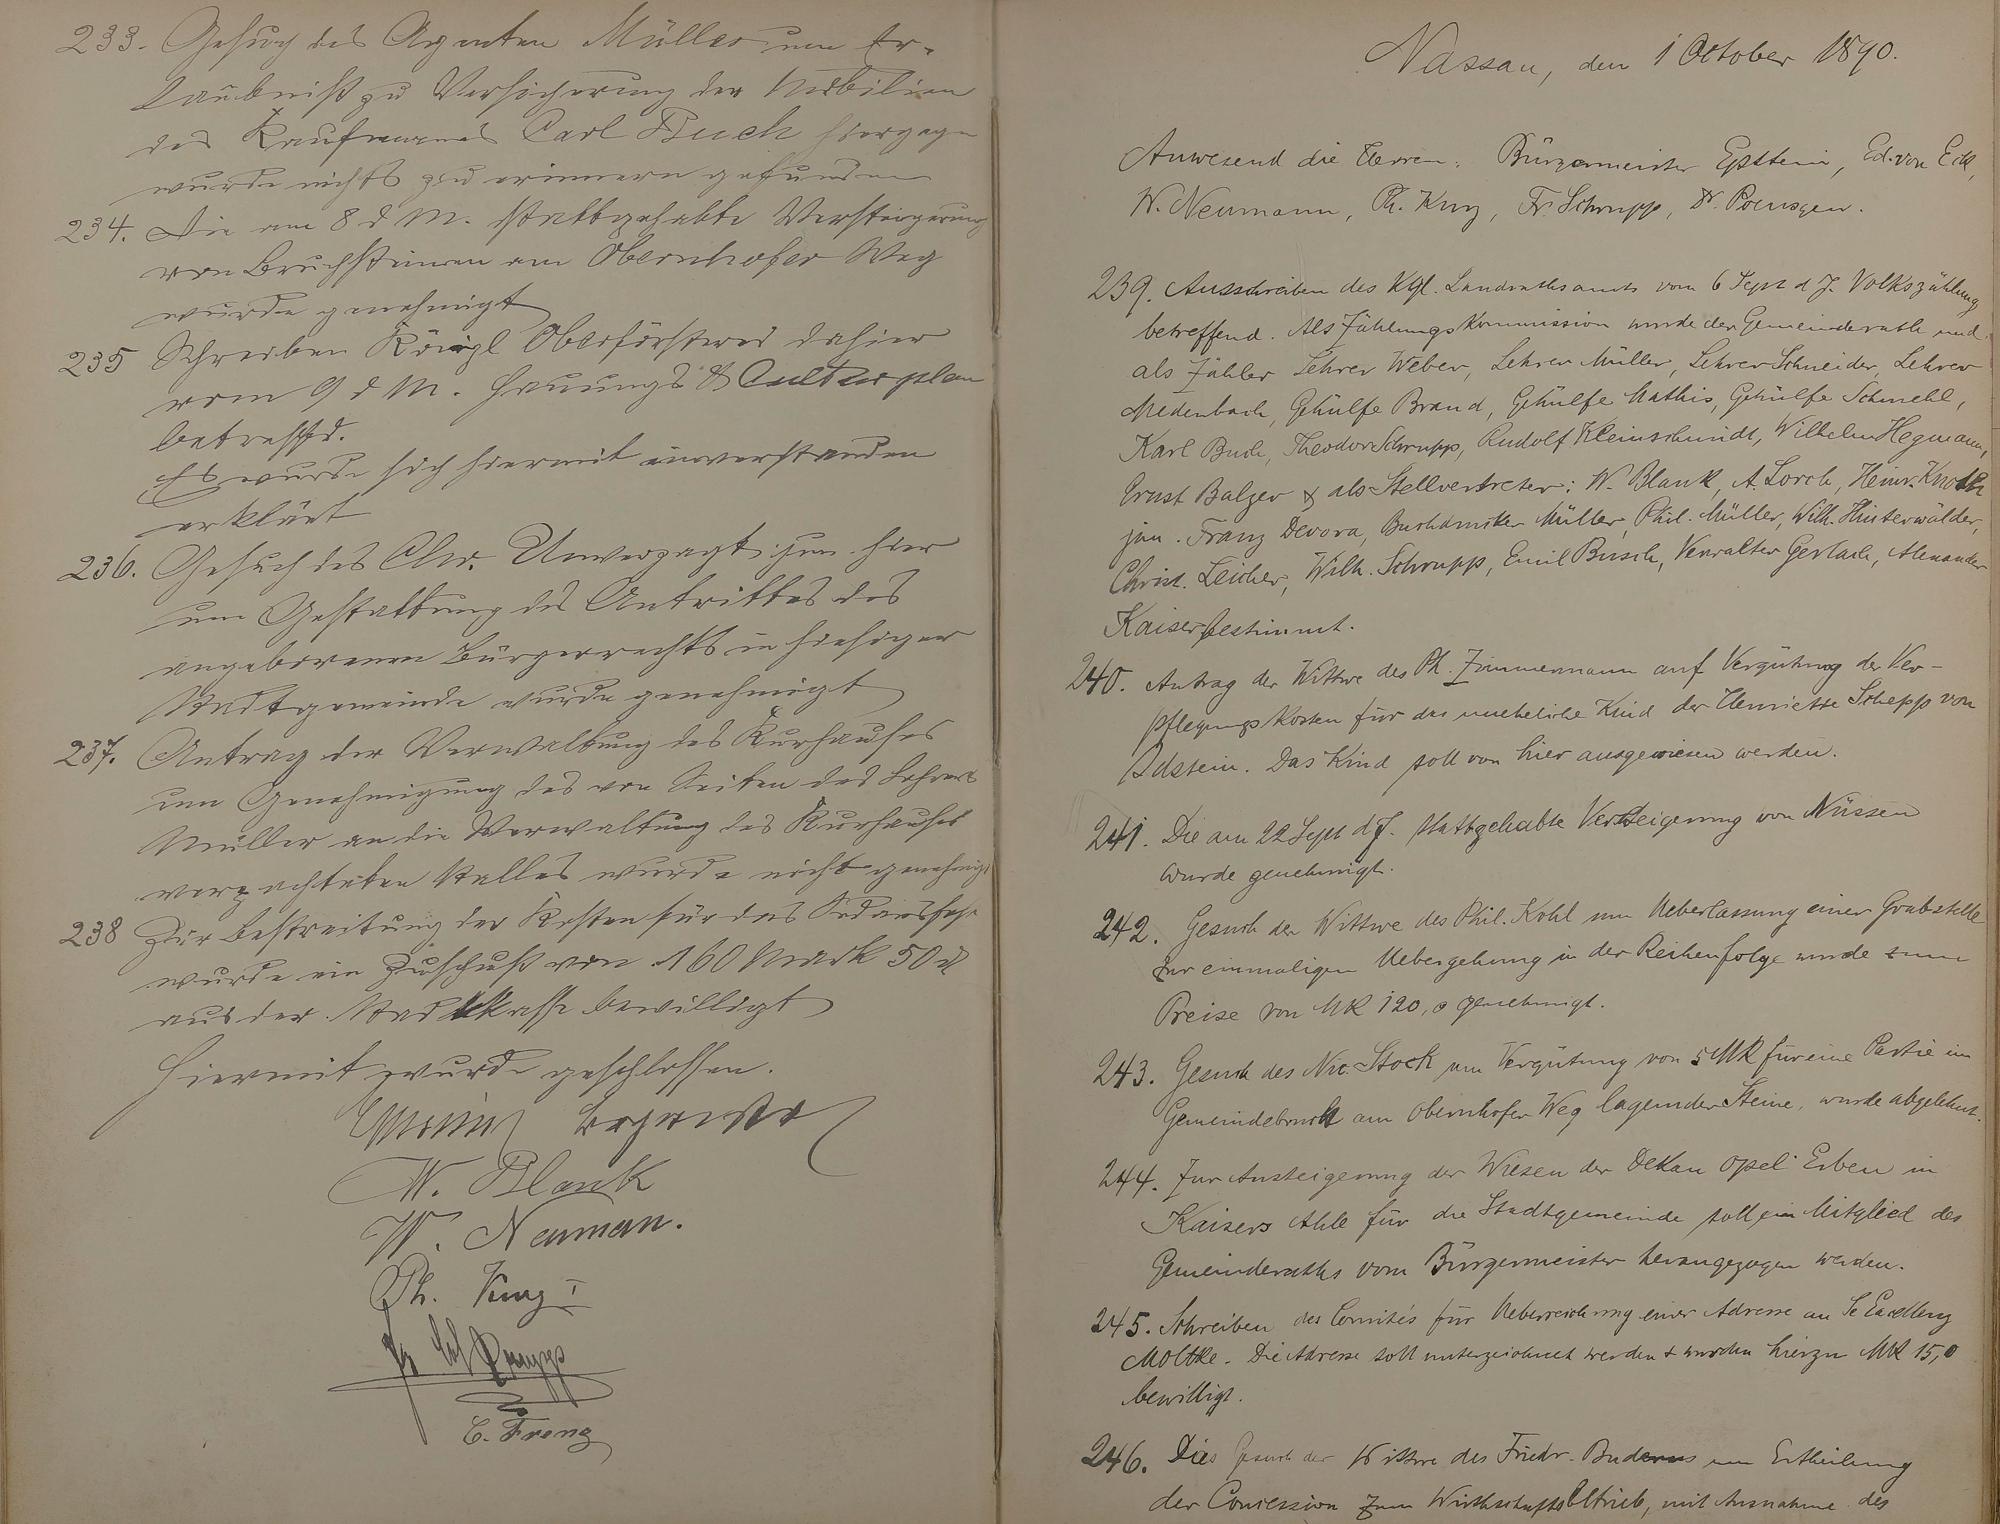 233. Gesuch des Agenten Müller um Er-
laubniß zu Versicherung der Mobilien
des Kaufmannes Carl Buch hiergegen
wurde nichts zu erinnern gefunden
234. Die am 8 d M. stattgehabte Versteigerung
von Bruchsteinen am Obernhofer Weg
wurde genehmigt
235 Schreiben Königl Oberförsterei dahier
vom 9 d M. Hauungs & Culturplan
betreffd.
Es wurde sich hiermit einverstanden
erklärt
236. Gesuch des Chr. Unverzagt jun. hier
um Gestattung des Antrittes des
angeborenen Bürgerrechts in hiesiger
Stadtgemeinde wurde genehmigt
237. Antrag der Verwaltung des Kurhauses
um Genehmigung des von Seiten des Lehrers
Müller an die Verwaltung des Kurhauses
verpachteten Stalles wurde nicht genehmigt
238 Zur Bestreitung der Kosten für das Sedansfest
wurde ein Zuschuß von 160 Mark 50 d
aus der Stadtkasse bewilligt
Hiermit wurde geschlossen.
W. Blank
W. Neuman.
Ph. Kunz I
Fr Schrupp
C. Frenz
Nassau, den 1 October 1890.
Anwesend die Herren: Bürgermeister Epstein, Ed. von Eck,
W. Neumann, Ph. Kunz, Fr. Schrupp, Dr. Poensgen.
239. Ausschreiben des Kgl. Landrathsamts vom 6 Sept d J. Volkszählung
betreffend. Als Zählungskommission wurde der Gemeinderath und
als Zähler Lehrer Weber, Lehrer Müller, Lehrer Schneider, Lehrer
Medenbach, Gehülfe Brand, Gehülfe Mathis, Gehülfe Schmehl,
Karl Buch, Theodor Schrupp, Rudolf Kleinschmidt, Wilhelm Hegmann,
Ernst Balzer & als Stellvertreter: W. Blank, A. Lorch, Heinr. Knoth
jun. Franz Devora, Buchdrucker Müller, Phil. Müller, Wilh. Hinterwälder,
Christ. Leicher, Wilh. Schrupp, Emil Busch, Verwalter Gerlach, Alexander
Kaiser bestimmt.
240. Antrag der Wittwe des Ph. Zimmermann auf Vergütung der Ver-
pflegungskosten für das uneheliche Kind der Henriette Schepp von
Idstein. Das Kind soll von hier ausgewiesen werden.
241. Die am 22 Sept d J. stattgehabte Versteigerung von Nüssen
wurde genehmigt.
242. Gesuch der Wittwe des Phil. Kohl um Ueberlassung einer Grabstelle
zur einmaligen Uebergehung in der Reihenfolge wurde zum
Preise von MK 120,0 genehmigt.
243. Gesuch des Nic. Stock um Vergütung von 5 MK für eine Partie im
Gemeindebruch am Obernhofer Weg lagernder Steine, wurde abgelehnt.
244. Zur Ansteigerung der Wiesen der Dekan Opel Erben in
Kaisers Ahle für die Stadtgemeinde soll ein Mitglied des
Gemeinderaths vom Bürgermeister herangezogen werden.
245. Schreiben des Comités für Ueberreichung einer Adresse an Se Excellenz
Moltke. Die Adresse soll unterzeichnet werden & wurden hierzu MK 15,0
bewilligt.
246. Das Gesuch der Wittwe des Friedr. Buderus um Ertheilung
der Concession zum Wirthschaftsbetrieb, mit Ausnahme des